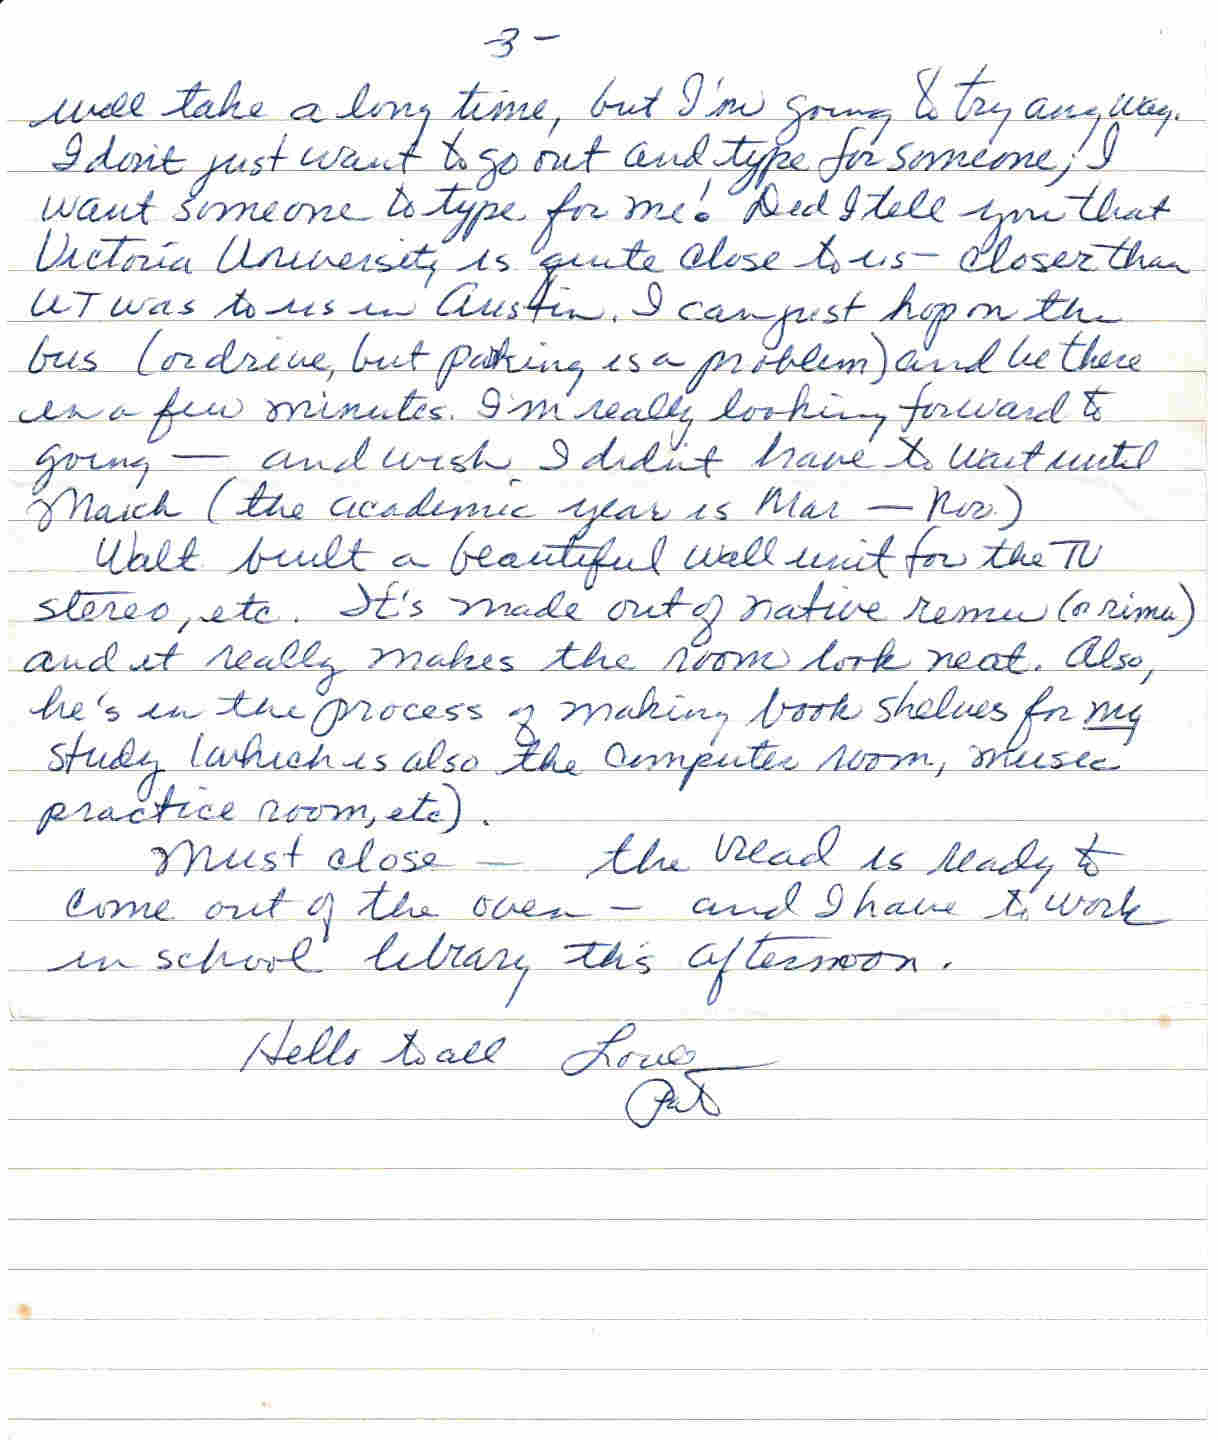 3 -
will take a long time, but I'm going to try anyway.
I don't just want to go out and type for someone; I
want someone to type for me! Did I tell you that
Victoria University is quite close to us - closer than
UT was to us in Austin. I can just hop on the
bus (or drive, but parking is a problem) and be there
in a few minutes. I'm really looking forward to
going — and wish I didn't have to wait until
March (the academic year is Mar — Nov.)
Walt built a beautiful wall unit for the TV
stereo, etc. It's made out of native remu (or rimu)
and it really makes the room look neat. Also,
he's in the process of making book shelves for my
study (which is also the computer room, music
practice room, etc).
Must close — the bread is ready to
come out of the oven - and I have to work
in school library this afternoon.
Hello to all Love
Pat